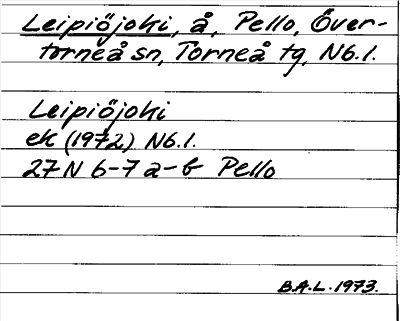 Leipiöjoki, å, Pello, Över-
torneå sn, Torneå tg, Nb.l.
Leipiöjoki
ek (1972) Nb.l.
27 N 6-7 a-b Pello
B.A.L. 1973.